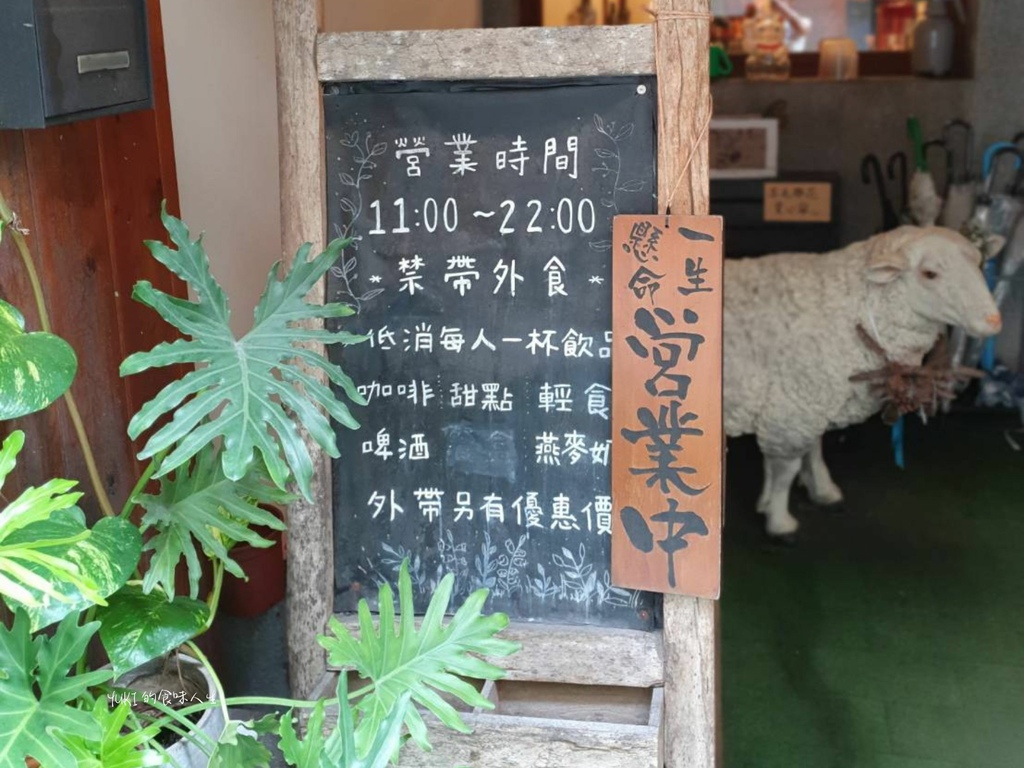 營業時間
11:00~22:00
*禁帶外食*
低消每人一杯飲品
咖啡 甜點 輕食
啤酒 燕麥奶
外帶另有優惠價
一生
懸命
営業中
YUKI的食味人生